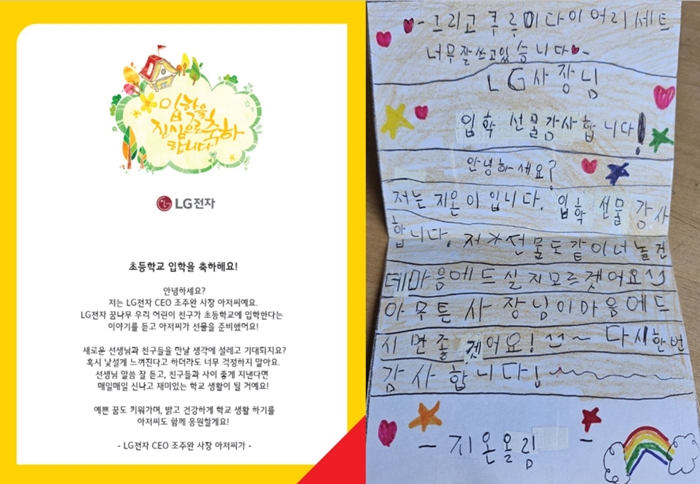 입학을
진심으로 축하
합니다
LG전자
초등학교 입학을 축하해요!
안녕하세요?
저는 LG전자 CEO 조주완 사장 아저씨예요.
LG전자 꿈나무 우리 어린이 친구가 초등학교에 입학한다는
이야기를 듣고 아저씨가 선물을 준비했어요!
새로운 선생님과 친구들을 만날 생각에 설레고 기대되지요?
혹시 낯설게 느껴진다고 하더라도 너무 걱정하지 말아요.
선생님 말씀 잘 듣고, 친구들과 사이 좋게 지낸다면
매일매일 신나고 재미있는 학교 생활이 될 거예요!
예쁜 꿈도 키워가며, 밝고 건강하게 학교 생활 하기를
아저씨도 함께 응원할게요!
- LG전자 CEO 조주완 사장 아저씨가 -
- 그리고 쿠루미다이어리세트
너무잘쓰고있습니다
LG사장님
입학 선물감사합니다!
안녕하세요?
저는 지온이입니다. 입학 선물 감사
합니다. 저가 선물도 같이너놓건
데마음에드실지모르겟어요
아무튼 사장님이마음에드
시면좋겟어요! ~ 다시한번
감사합니다!
- 지온올림 -